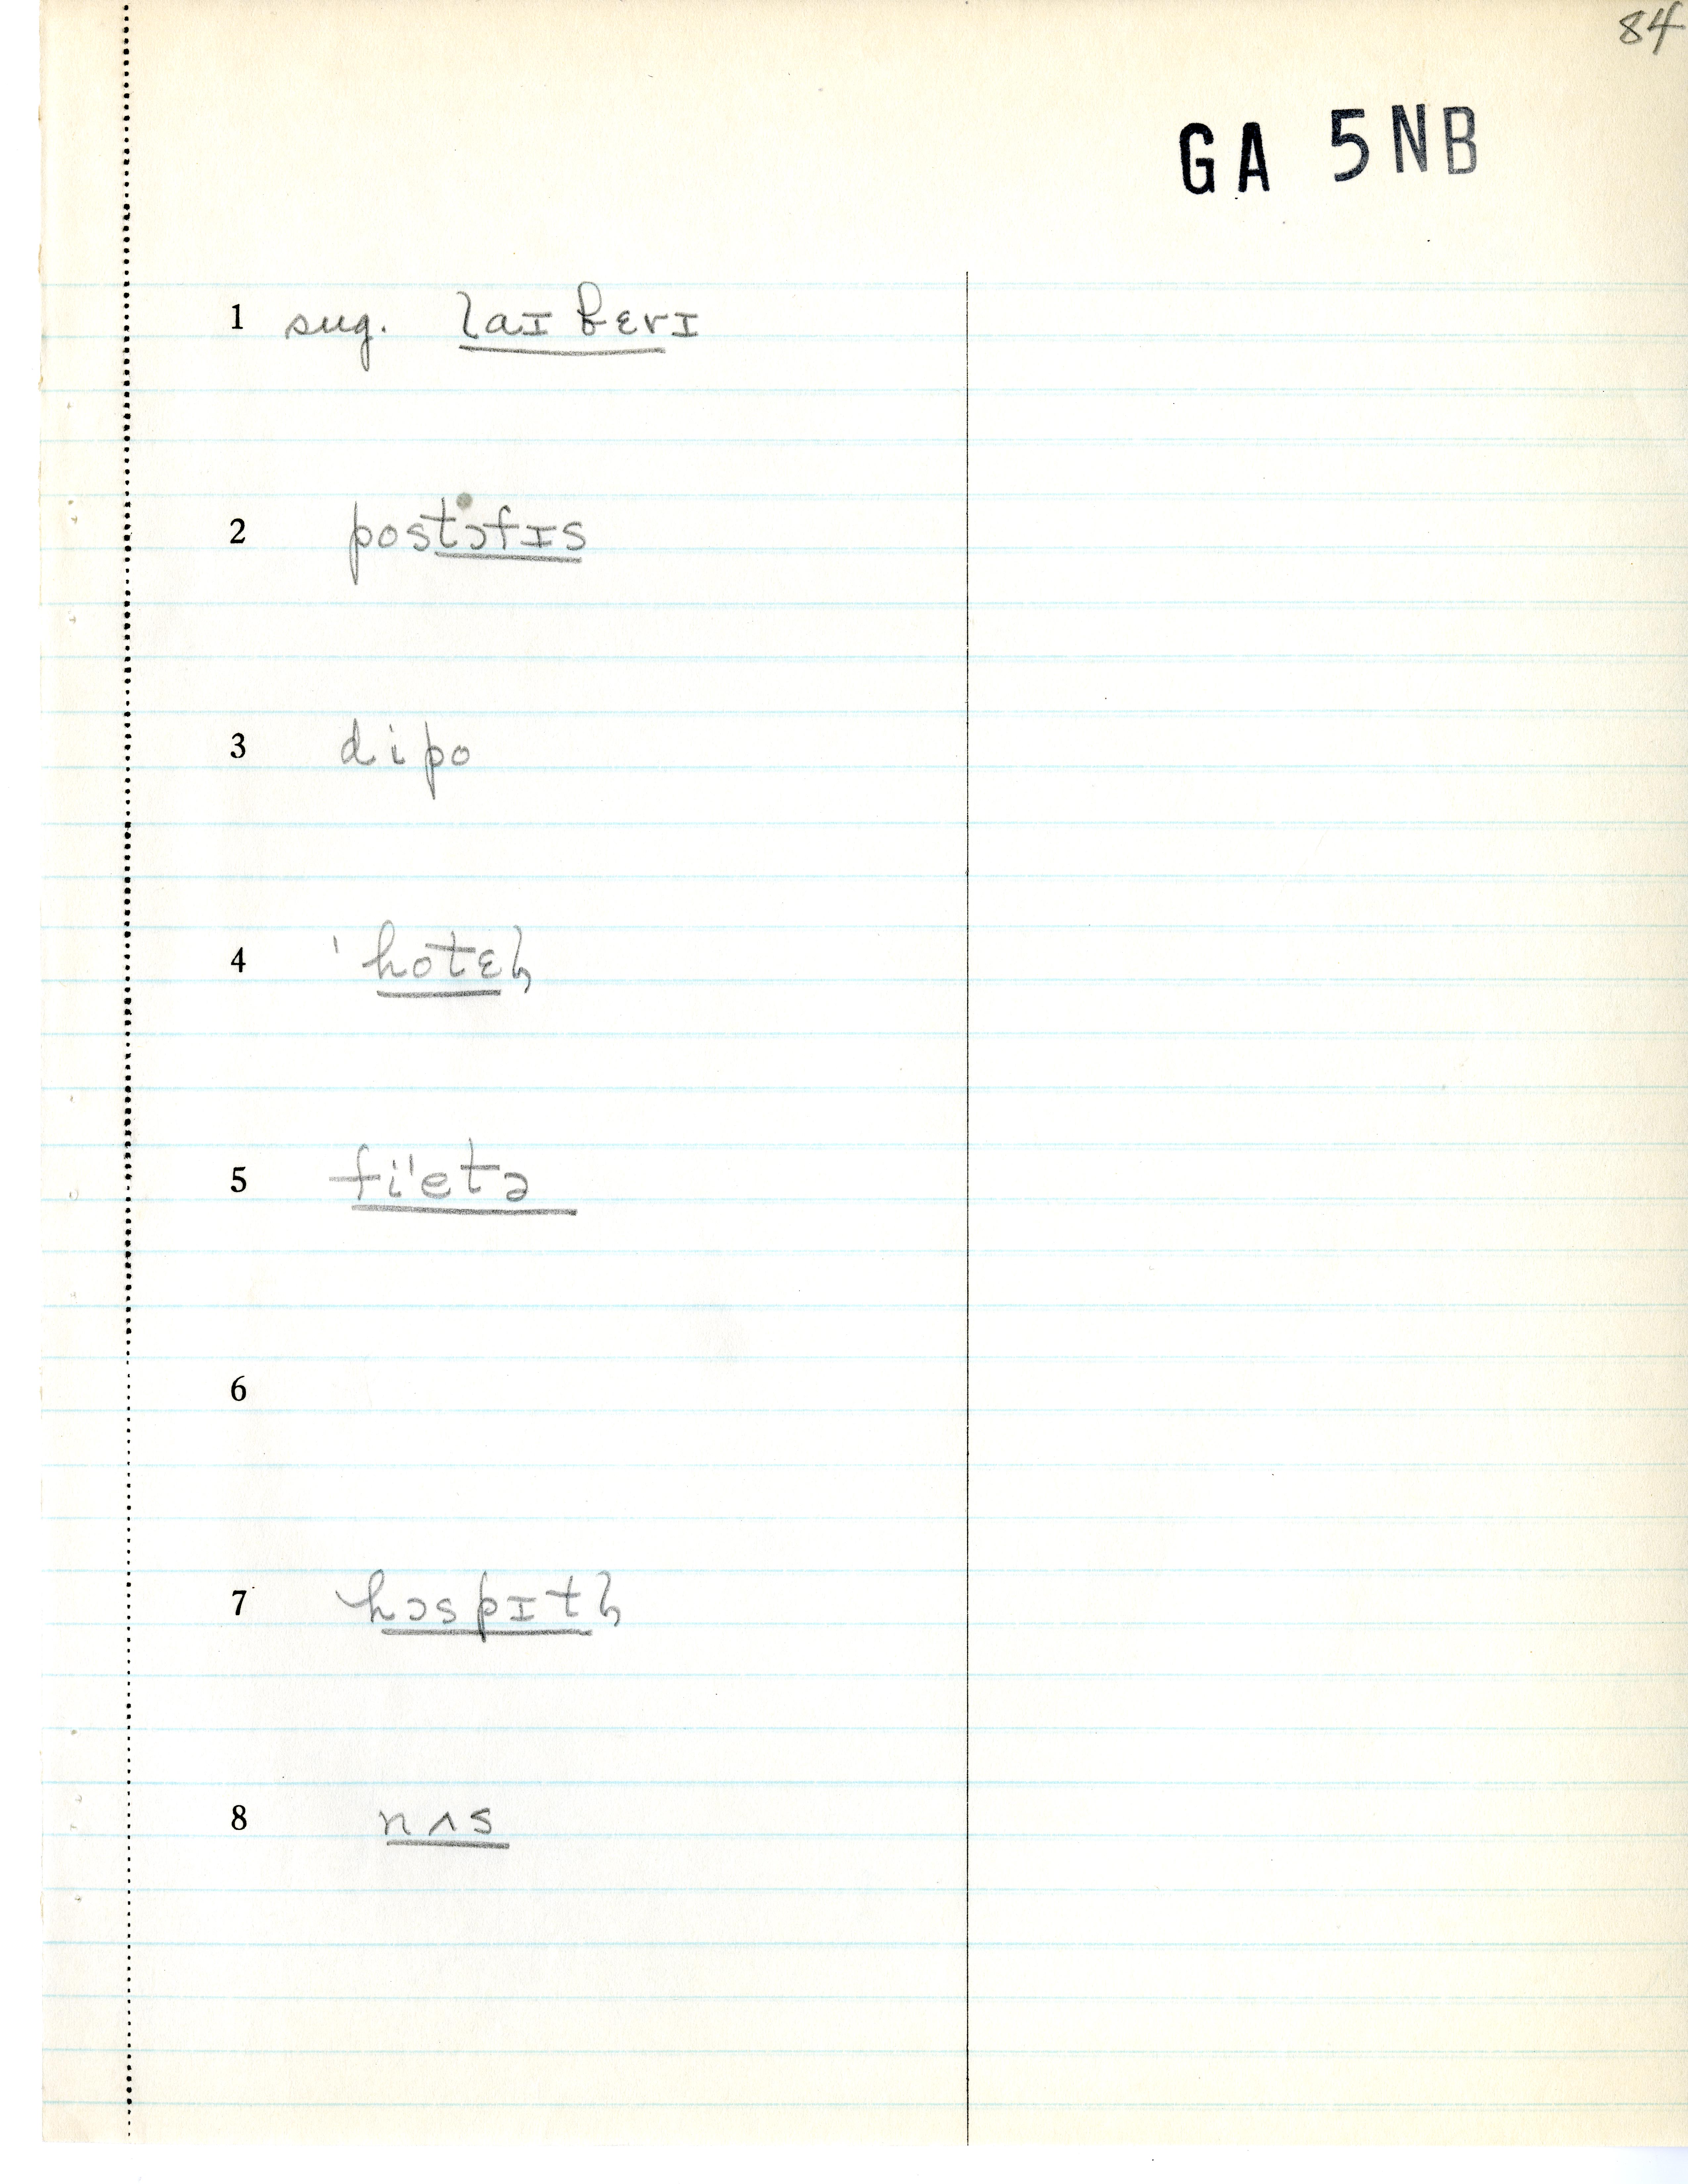 84
GA 5NB
1 sug. laɪβɛrɪ
2 postɔfɪs
3 dipo
4 ˈhotɛɫ
5 fiˈetə
6
7 hɔspɪtɫ
8 nʌs